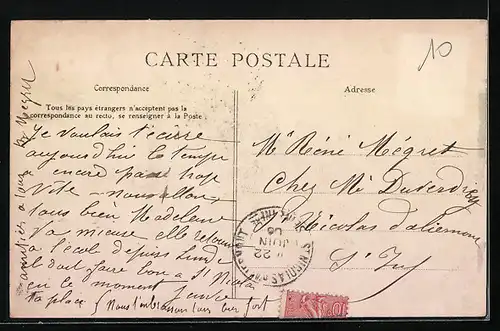 10
CARTE POSTALE
Correspondance
Adresse
Tous les pays étrangers n'acceptent pas la
correspondance au recto, se renseigner à la Poste
Je voulais t'écrire
aujourd'hui le temps
a encore passé trop
vite – nous allons
tous bien Madeleine
va mieux elle retourne
à l'école depuis Lundi
il doit faire bon a St Nicolas
en ce moment
ta place
Nous t'embrassons tous bien fort
amitiés a tous
Mr René Mégret
Chez Mr
Nicolas d'aliermont
St Inf
22
JUIN